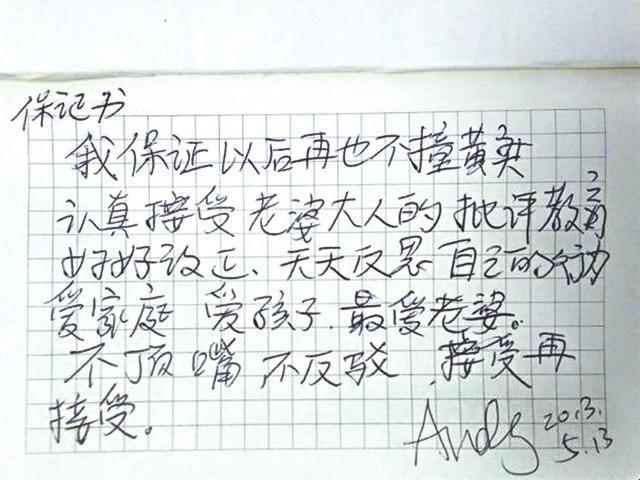 保证书
我保证以后再也不撞黄奕
认真接受老婆大人的批评教育
好好改正、天天反思自己的
爱家庭 爱孩子.最爱老婆。
不顶嘴 不反驳 接受再
接受。
Andy 2013.
5.13